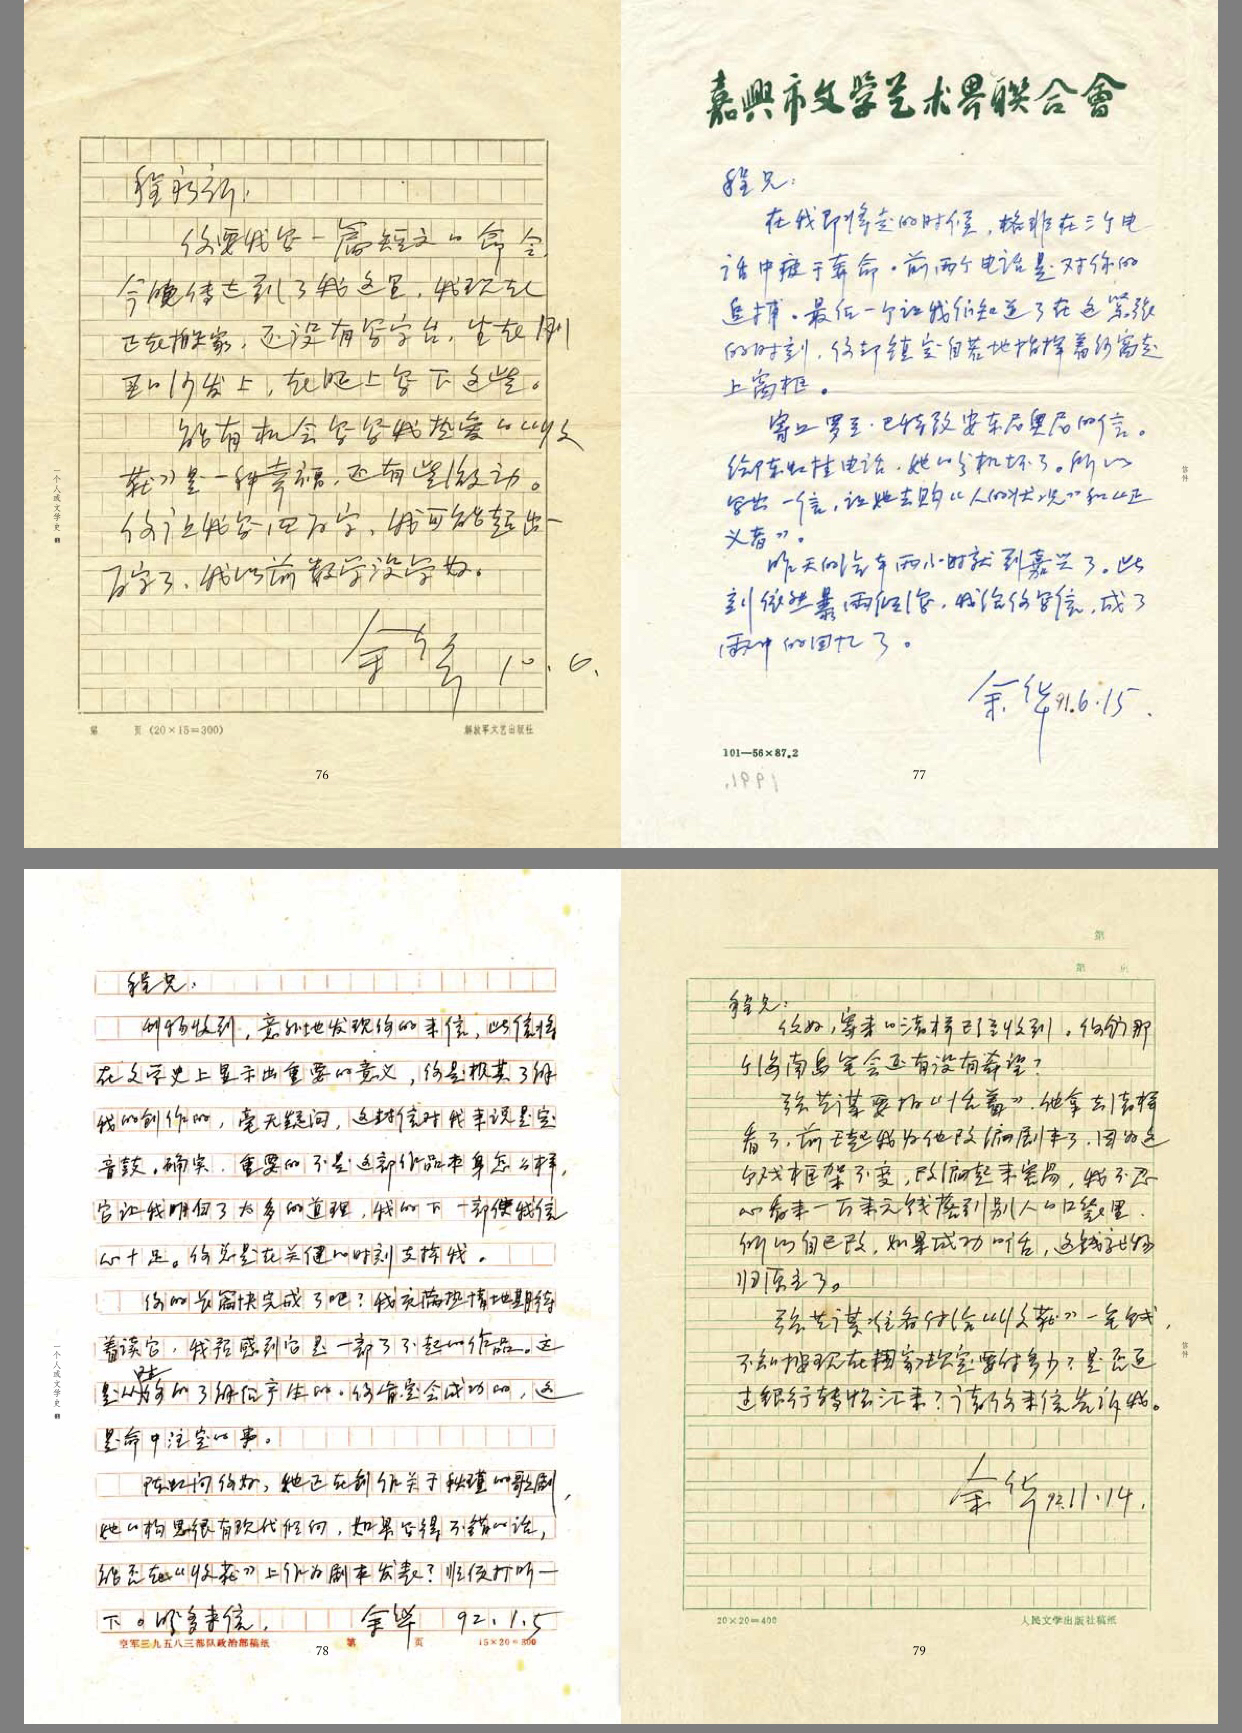 程永新：
你要我写一篇短文的命令
今晚传达到了我这里，我现在
正在搬家，还没有写字台，坐在刚
到的沙发上，在腿上写下这些。
能有机会写写我热爱的《收
获》是一种幸福，还有些激动。
你让我写四百字，我可能超出一
百字了，我以前数学没学好。
余华 10.6.
第 页（20×15=300）
解放军文艺出版社
一个人成文学史
76
嘉興市文学艺术界联合會
程兄：
在我即将走的时候，格非在三个电
话中疲于奔命。前两个电话是对你的
追捕。最后一个让我们知道了在这紧张
的时刻，你却镇定自若地指挥着将窗走
上窗框。
寄上罗至·巴特致安东尼奥尼的信。
给陈虹挂电话，她的分机坏了。所以
写出一信，让她去购《人的状况》和《正
义者》。
昨天的火车两小时就到嘉兴了。此
刻依然暴雨倾泻，我给你写信，成了
雨中的回忆了。
余华 91.6.15.
101—56×87.2
77
信件
程兄：
刊物收到，意外地发现你的来信，此信将
在文学史上显示出重要的意义，你是极其了解
我的创作的，毫无疑问，这封信对我来说是定
音鼓。确实，重要的不是这部作品本身怎么样，
它让我明白了太多的道理，我的下一部使我信
心十足。你总是在关键的时刻支持我。
你的长篇快完成了吧？我充满热情地期待
着读它，我预感到它是一部了不起的作品。这
是从对你的了解后产生的。你肯定会成功的，这
是命中注定的事。
陈虹问你好，她正在创作关于秋瑾的歌剧，
她的构思很有现代倾向，如果写得不错的话，
能否在《收获》上作为剧本发表？顺便打听一
下。盼多来信。
余华 92.1.5
空军三九五八三部队政治部稿纸 第 页 15×20=300
一个人成文学史
78
第
第 页
程兄：
你好，寄来的清样已经收到。你们那
个海南岛笔会还有没有希望？
张艺谋要拍《活着》，他拿去清样
看了，前天起我为他改编剧本了，因为这
个戏框架不变，改编起来容易，我不忍
心看来一万来元钱落到别人的口袋里，
所以自己改，如果成功的话，这钱就物
归原主了。
张艺谋准备付给《收获》一笔钱，
不知按现在国家法定要付多少？是否通
过银行转帐汇来？请你来信告诉我。
余华 92.11.14.
20×20=400
人民文学出版社稿纸
信件
79